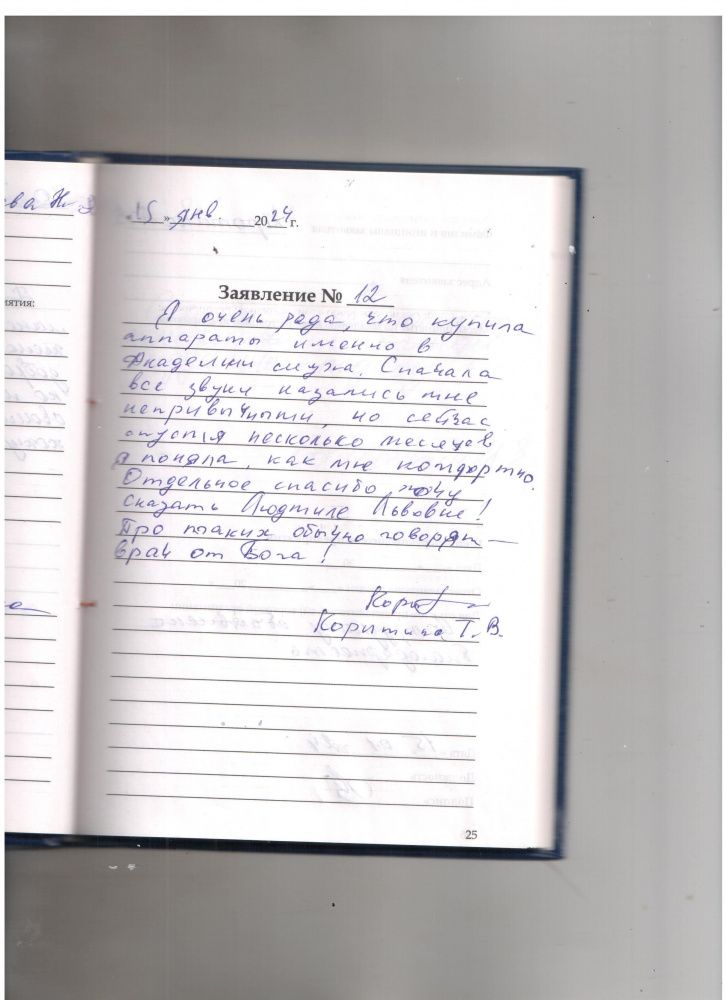 ва Н.
ятия:
«15» янв. 2024 г.
Заявление № 12
Я очень рада, что купила
аппараты именно в
Академии слуха. Сначала
все звуки казались мне
непривычными, но сейчас
спустя несколько месяцев
я поняла, как мне комфортно.
Отдельное спасибо хочу
сказать Людмиле Львовне!
Про таких обычно говорят —
врач от Бога!
Т. В.
25